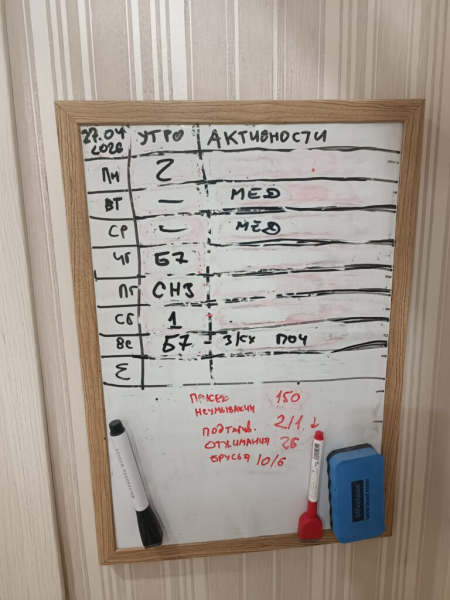 27.04 2026 УТРО АКТИВНОСТИ
ПН 2
ВТ — МЕД
СР — МЕД
ЧТ Б7
ПТ СН3
СБ 1
ВС Б7 - ЗКХ ПОЧ
Σ
ПРИСЕД 150
НЕУМЫВАКИ
ПОДТЯГИВ. 2/1 ↓
ОТЖИМАНИЯ 26
БРУСЬЯ 10/6